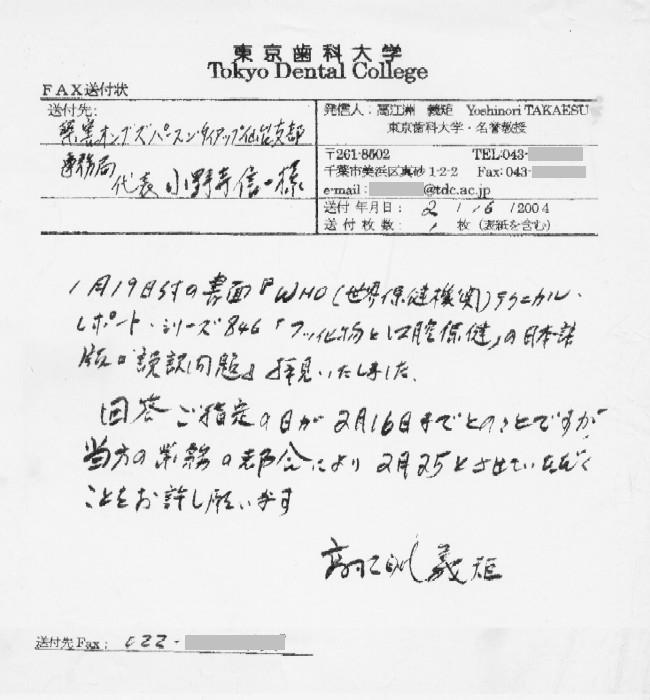 東京歯科大学
Tokyo Dental College
FAX送付状
送付先:
薬害オンブズパースンタイアップ仙台支部
事務局
代表 小野寺信一様
発信人:高江洲 義矩 Yoshinori TAKAESU
東京歯科大学・名誉教授
〒261-8502 TEL:043-
千葉市美浜区真砂1-2-2 Fax:043-
e-mail: @tdc.ac.jp
送付年月日: 2 / 6 /2004
送付枚数: 1 枚(表紙を含む)
1月19日付の書面『WHO(世界保健機関)テクニカル・
レポート・シリーズ846「フッ化物と口腔保健」の日本語
版の誤訳問題』拝見いたしました.
回答ご指定の日が2月16日までとのことですが
当方の業務の都合により2月25とさせていただく
ことをお許し願います
高江洲 義矩
送付先Fax: 022-